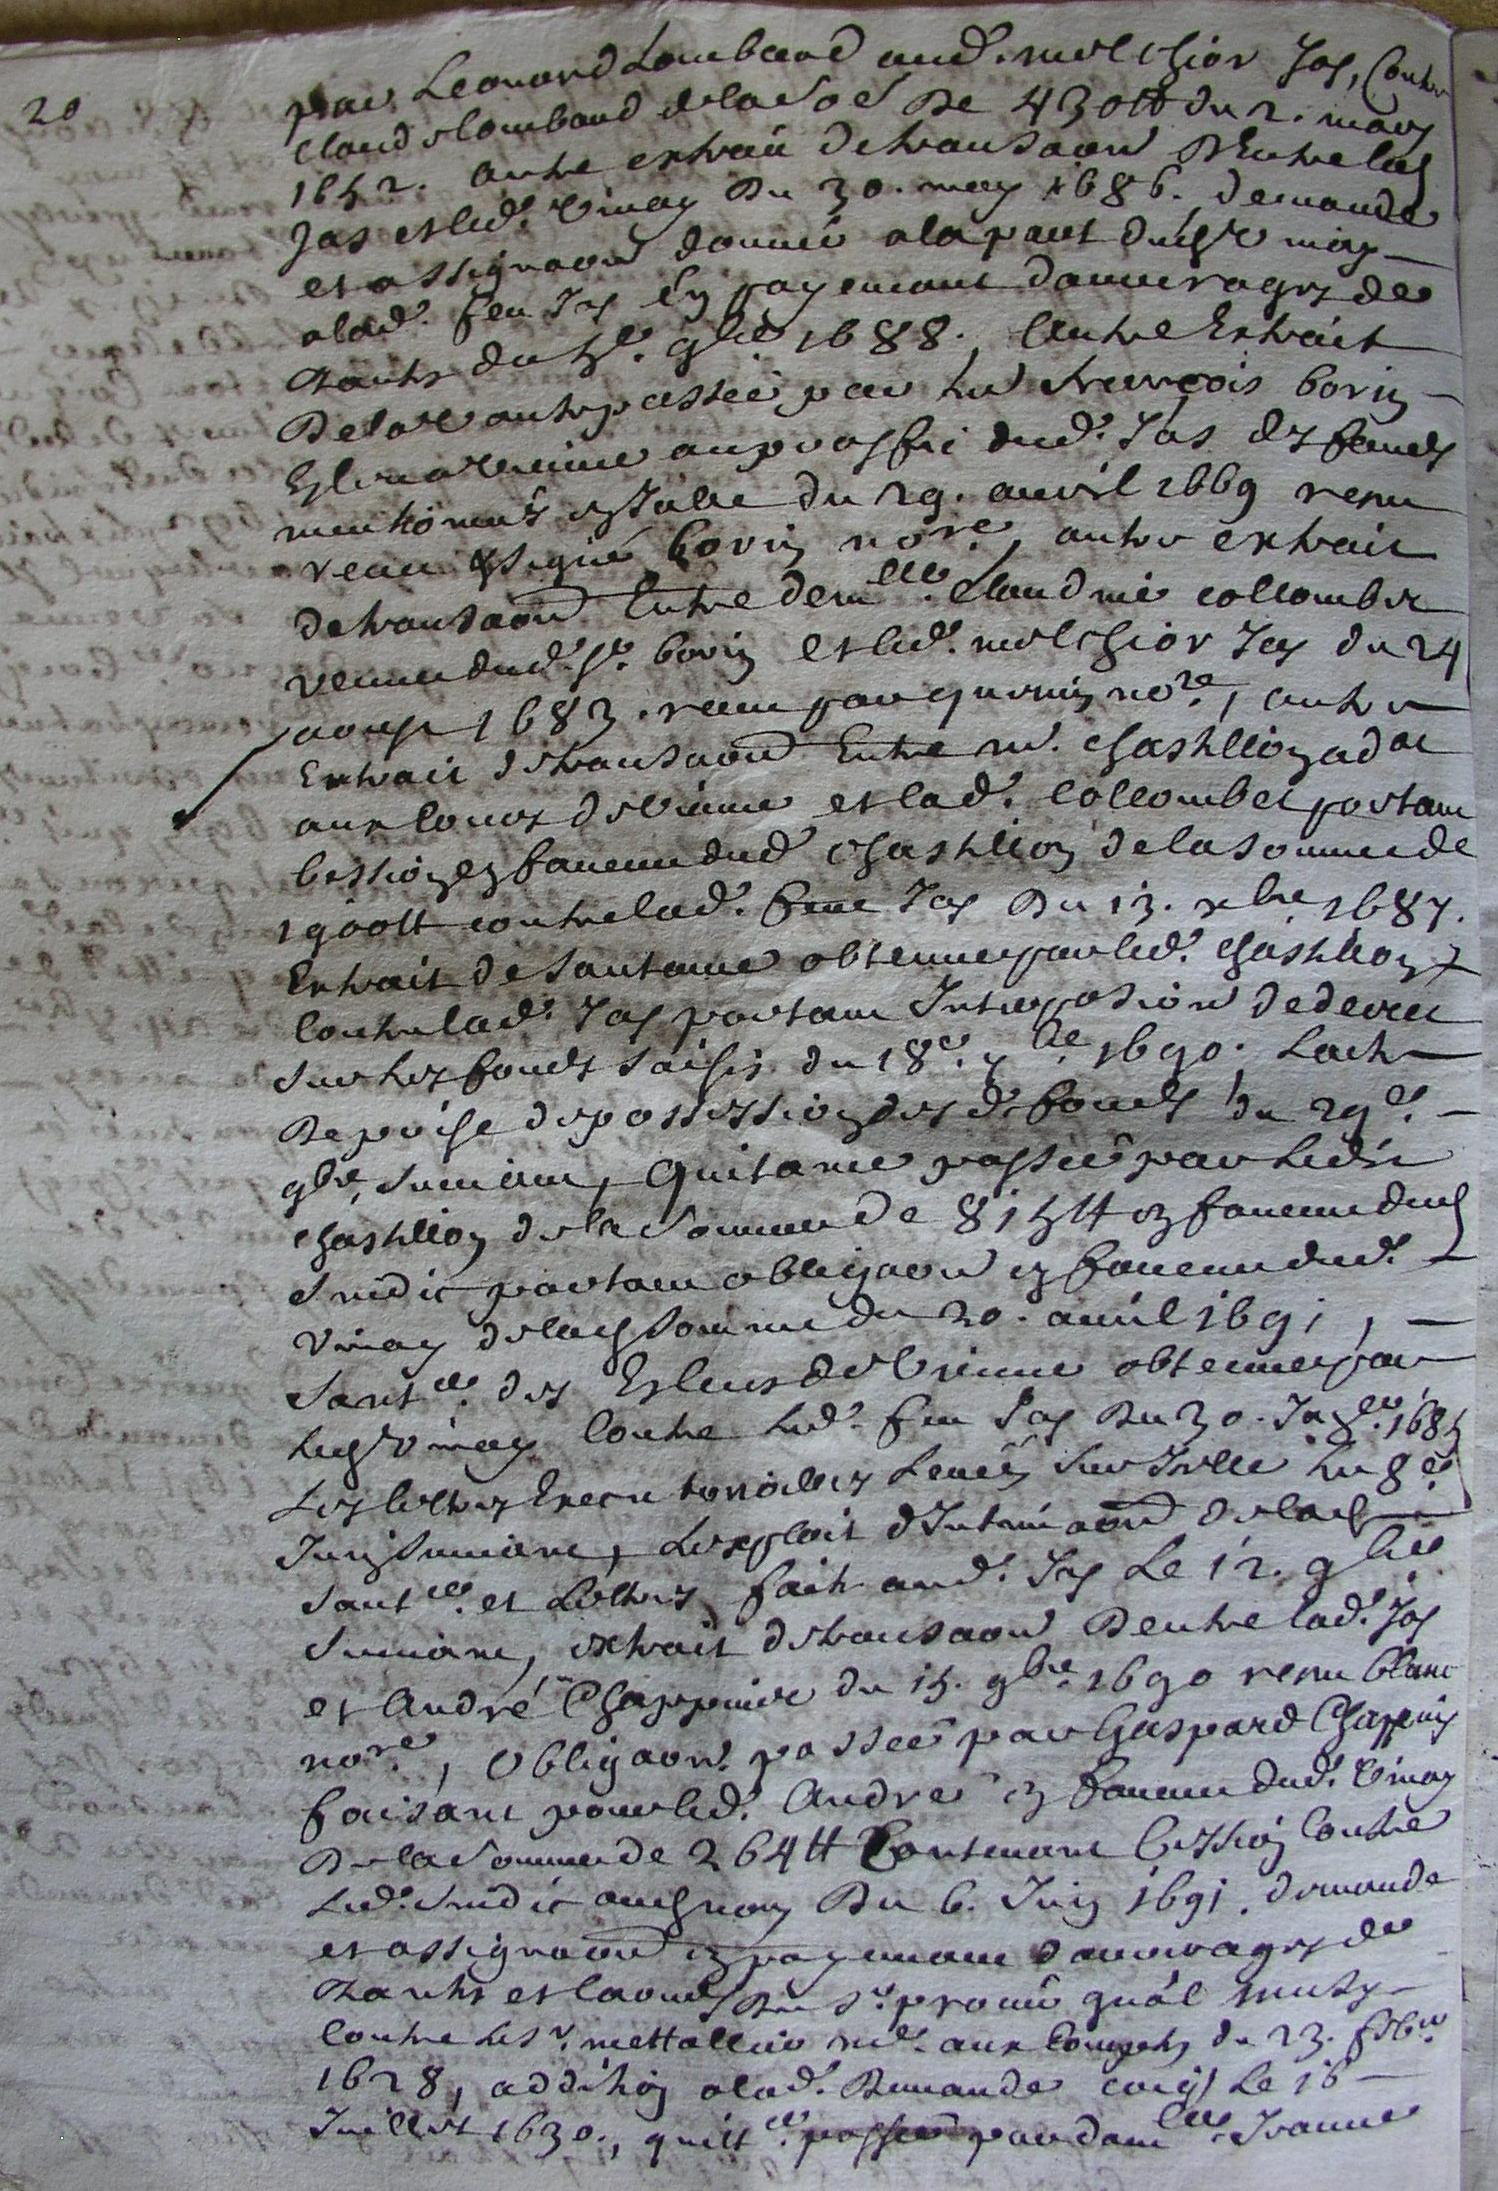 20
par Leonard Lombard aud. melchior Jas, Contre
Claude lombard de la So.e De 430tt du 2. mars
1652. autre extrait de transaon D'Entre led
Jas et led. Vinay Du 30. may 1686. demande
et assignaon donnée a la part dud Sr Vinay
a lad. feu Jas En payement d'auverages de
du 9bre 1688. Autre Extrait
De la vante passée par Me francois borin
au proffit dud. Jas des fonds
mentionnés en Icelle du 29. avril 1669 receu
signé borin nore, autre extrait
de transaon Entre demlle. Claudine collombet
veuve dud. Sr. borin et led. melchior Jas du 24
aoust 1683. receu par guerin nore, autre
Extrait de transaon Entre me. Chastellion adat
aux Cours de Vienne et lad. Collombet portant
Cession en faveur dud Chastellion de la Somme de
1900tt contre lad. feue Jas Du 13. xbre 1687.
Extrait de Santance obtenue par led. Chastellion
Contre lad. Jas portant Interposition de decret
Sur les fonds saisis du 18e. 1690. L'acte
De prise de possession des d. fonds du 29e.
9bre suivant, Quitance passée par led Sr
Chastellion de la Somme de 815tt en faveur dud
Sindic portant obligaon en faveur dud.
Vinay de lad Somme du 20. avril 1691,
Santce. des Esleus de Vienne obtenue par
led Sr Vinay Contre led. feu Jas Du 30. 1685
Les lettres Executorialles Levées Sur Icelle Le 8e
Juin Suivant, L'exploit d'Intimaon de lad
Santce. et Lettres fait aud. Jas Le 12. 9bre
Suivant, extrait de transaon D'entre lad. Jas
et André Chappuis du 15. 9bre 1690 receu Blanc
nore, Obligaon passée par Gaspard Chappuis
faisant pour led. André en faveur dud. Vinay
De la Somme de 264tt Contenant Cession Contre
Led. Sindic Du 6. Juin 1691. demande
et assignaon en payement d'auverages de
Du Sr. procu
Contre le Sr. mettallier me. aux Comptes du 23. febvr
1628, addition a lad. Demande Le 16
Juillet 1630., quitt ce. passée par damlle. Jeanne